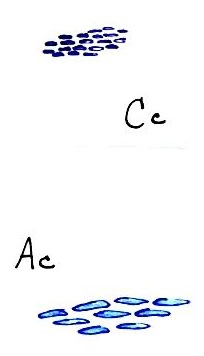 Cc
Ac